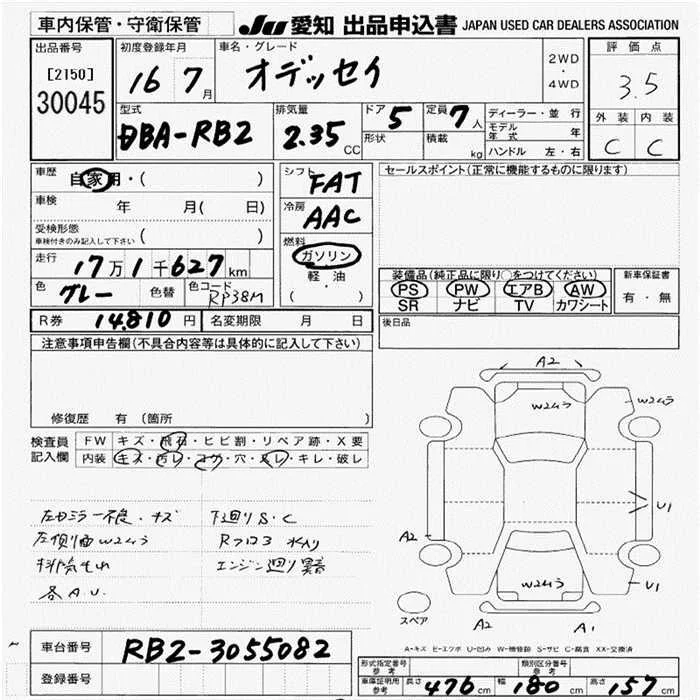 車内保管・守衛保管 JU 愛知 出品申込書 JAPAN USED CAR DEALERS ASSOCIATION
出品番号 初度登録年月 車名・グレード 2WD・4WD 評価点
[2150] 16 7月 オデッセイ 3.5
30045
型式 排気量 ドア 5 定員 7人 ディーラー・並行 外装 内装
DBA-RB2 2.35 CC 形状 積載 kg モデル年式 年 C C
ハンドル 左・右
車歴 自家用・( ) シフト FAT セールスポイント(正常に機能するものに限ります)
車検 年 月( 日) 冷房 AAC
受検形態 ( )
車検付きのみ記入して下さい
燃料
走行 17万1千627km ガソリン
軽・油
( )
装備品(純正品に限り○をつけてください) 新車保証書
色 グレー 色替 色コード RP38M PS PW エアB AW 有・無
SR ナビ TV カワシート
R券 14,810円 名変期限 月 日 後日品
注意事項申告欄(不具合内容等は具体的に記入して下さい)
修復歴 有 (箇所 )
検査員記入欄 FW キズ・飛石・ヒビ割・リペア跡・X要
内装 キズ・汚レ・コゲ・穴・スレ・キレ・破レ
左ドミラー不良・キズ 下廻りS・C
左側面W2ムラ Rフロア 水入り
エンジン廻り異音
各A.U.
A2
W2ムラ
W2ムラ
A2
U1
W2ムラ
U1
スペア A2 A1
A-キズ E-エクボ U-凹み W-補修跡 S-サビ C-腐食 XX-交換済
車台番号 RB2-3055082
登録番号
形式指定番号 参考 類別区分番号 参考
車庫証明用 参考 長さ 476cm 幅 180cm 高さ 157cm